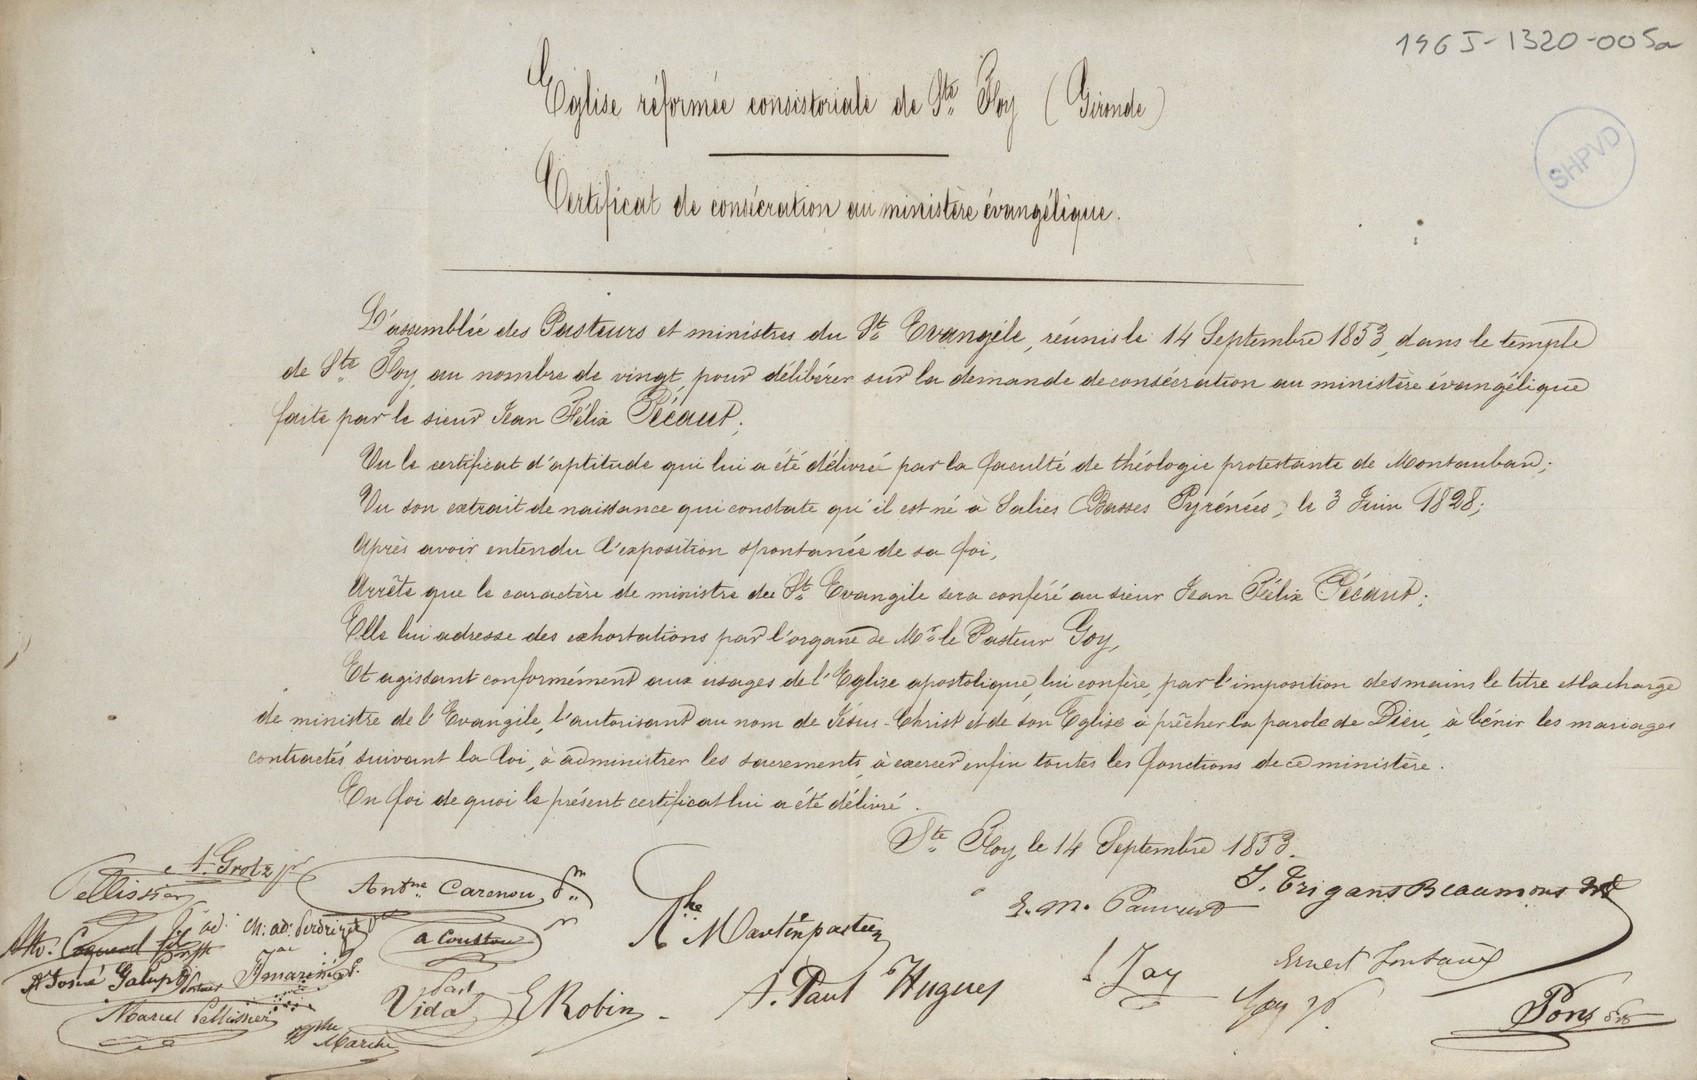 196 J-1320-005a
SHPVD
Eglise réformée consistoriale de Ste Foy (Gironde)
Certificat de consécration au ministère évangélique.
L'assemblée des Pasteurs et ministres du St Evangile, réunis le 14 Septembre 1853, dans le temple
de Ste Foy, au nombre de vingt, pour délibérer sur la demande de consécration au ministère évangélique
faite par le sieur Jean Félix Pécaut;
Vu le certificat d'aptitude qui lui a été délivré par la faculté de théologie protestante de Montauban;
Vu son extrait de naissance qui constate qu'il est né à Salies (Basses Pyrénées, le 3 Juin 1828;
Après avoir entendu l'exposition spontanée de sa foi,
Arrête que le caractère de ministre du St Evangile sera conféré au sieur Jean Félix Pécaut;
Elle lui adresse des exhortations par l'organe de Mr le Pasteur Goy,
Et agissant conformément aux usages de l'Eglise apostolique, lui confère, par l'imposition des mains le titre et la charge
de ministre de l'Evangile, l'autorisant au nom de Jésus-Christ et de son Eglise à prêcher la parole de Dieu, à bénir les mariages
contractés suivant la loi, à administrer les sacrements, à exercer enfin toutes les fonctions de ce ministère.
En foi de quoi le présent certificat lui a été délivré.
Ste Foy, le 14 Septembre 1853.
A. Grotz pr
Pellissier
Antne Carenou, pr
J. Trigant Beaumont
Ath. Coquerel fils
A Coustou
The Martin pasteur
Josué Galup
L. Jay
Ernest Fontanès
Vidal past
E Robin
A. Paul Hugues
Goy pr
Pons
Marcel Pellissier
Marche